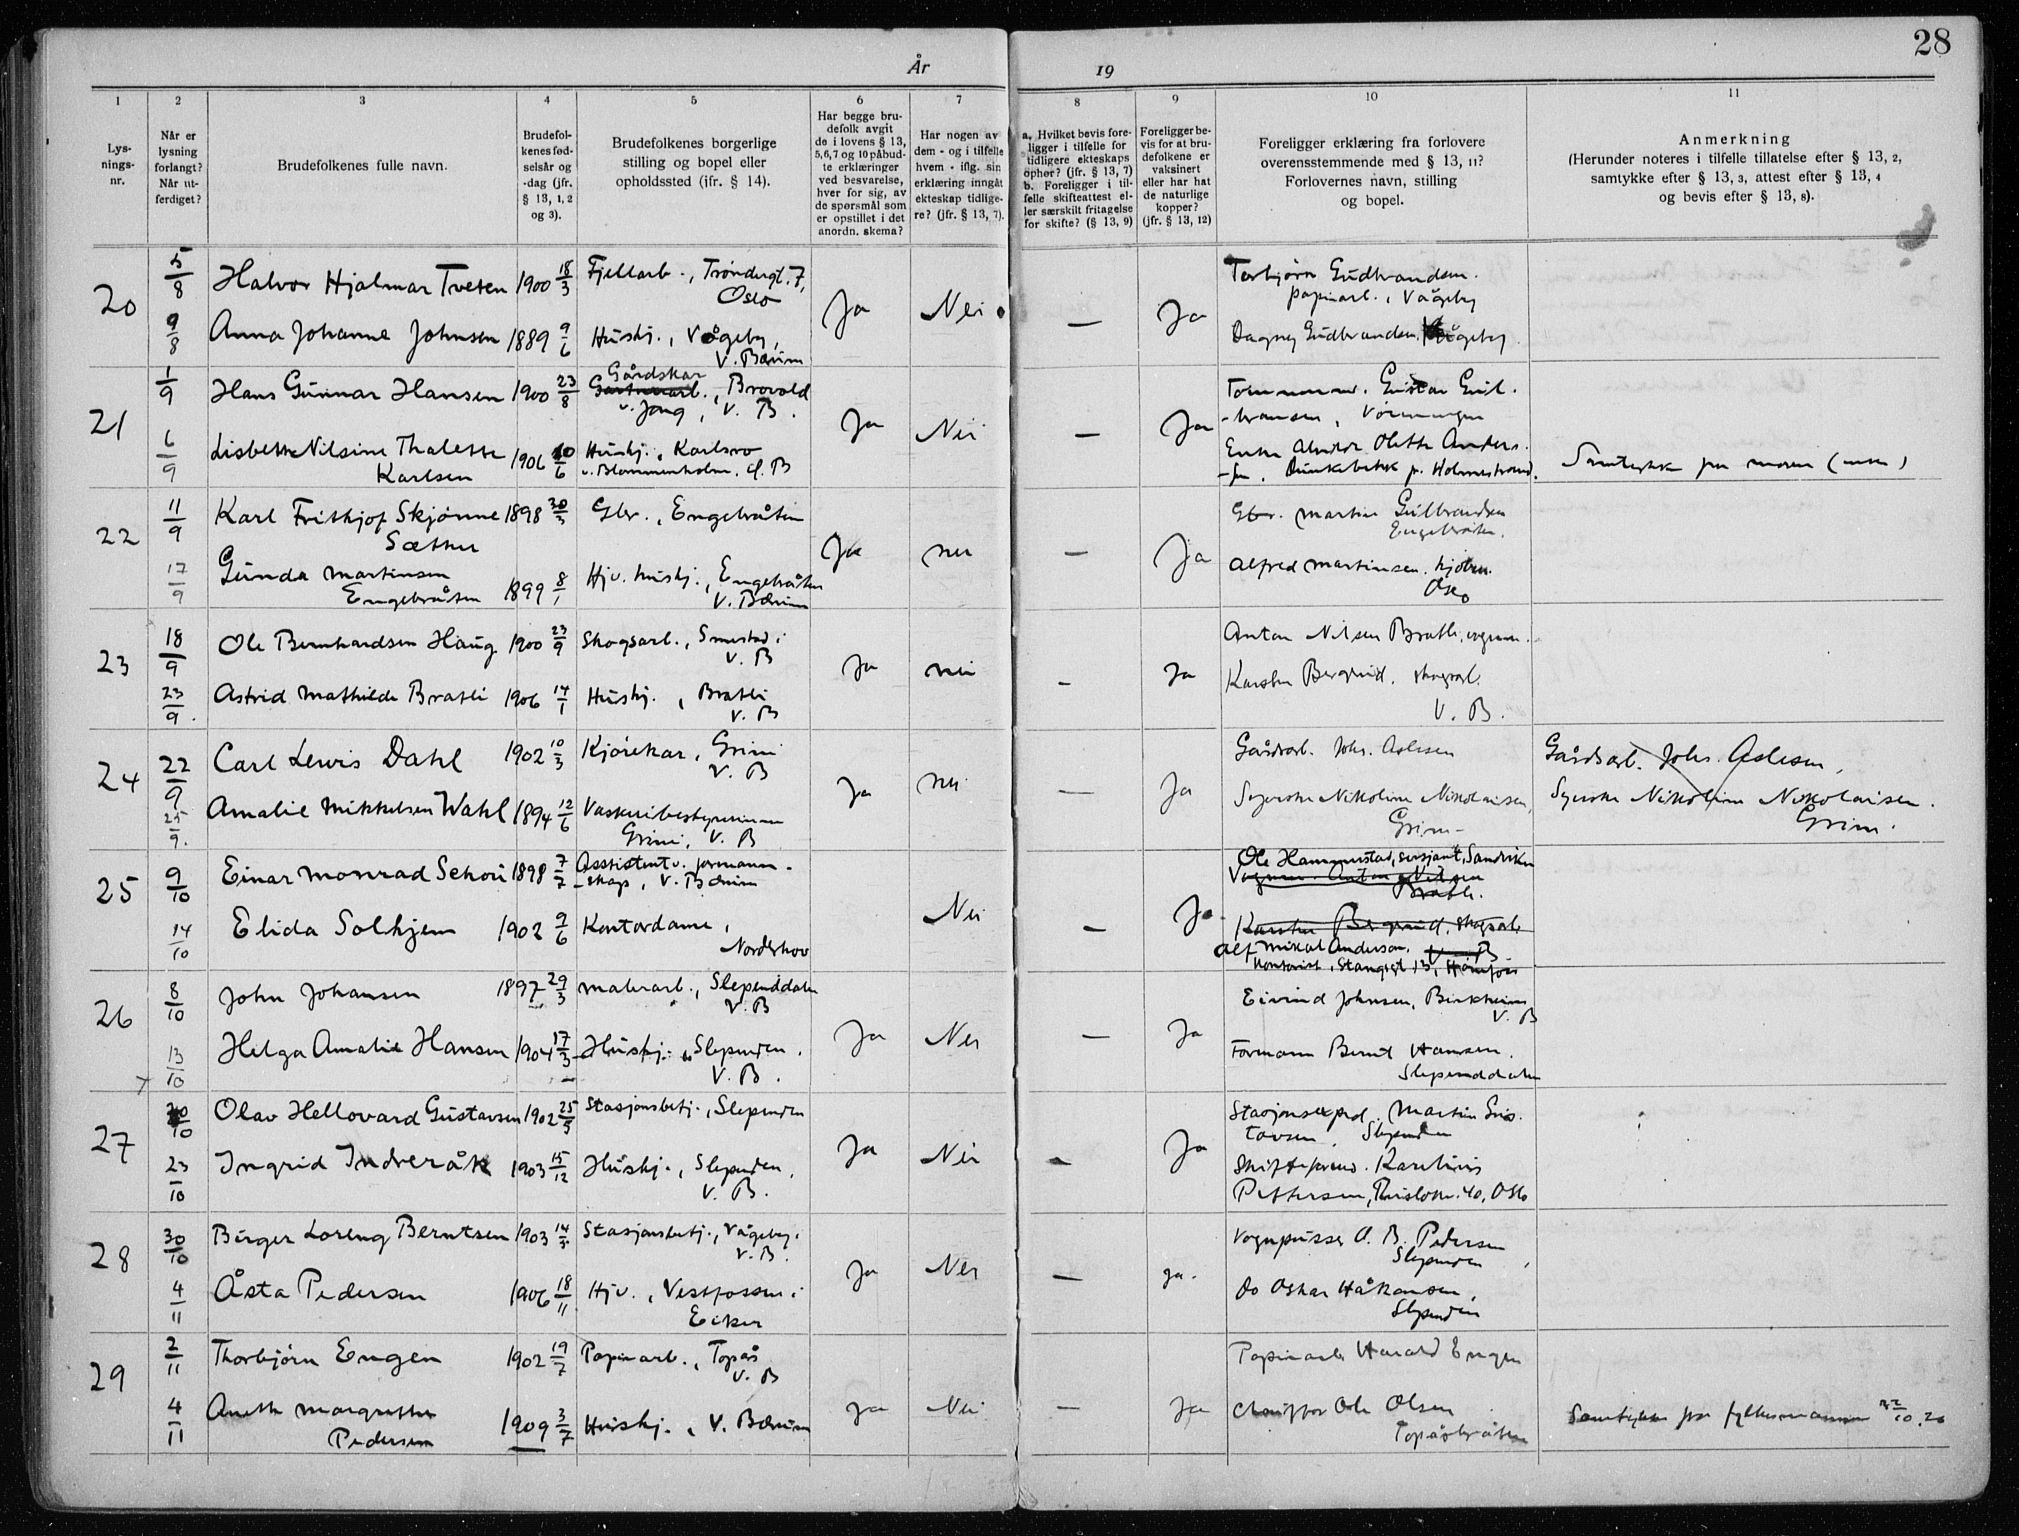 28
År
19
1
2
3
4
5
6
7
8
9
10
11
Lys-
nings-
nr.
Når er
lysning
forlangt?
Når ut-
ferdiget?
Brudefolkenes fulle navn.
Brudefol-
kenes fød-
selsår og
-dag (jfr.
§ 13, 1, 2
og 3).
Brudefolkenes borgerlige
stilling og bopel eller
opholdssted (jfr. § 14).
Har begge bru-
defolk avgit
de i lovens § 13,
5,6,7 og 10 påbud-
te erklæringer
ved besvarelse,
hver for sig, av
de spørsmål som
er opstillet i det
anordn. skema?
Har nogen av
dem - og i tilfelle
hvem - iflg. sin
erklæring inngåt
ekteskap tidlige-
re? (jfr. § 13, 7).
a. Hvilket bevis fore-
ligger i tilfelle for
tidligere ekteskaps
ophør? (jfr. § 13, 7)
b. Foreligger i til-
felle skifteattest el-
ler særskilt fritagelse
for skifte? (§ 13, 9)
Foreligger be-
vis for at bru-
defolkene er
vaksinert
eller har hat
de naturlige
kopper?
(jfr. § 13, 12)
Foreligger erklæring fra forlovere
overensstemmende med § 13, 11?
Forlovernes navn, stilling
og bopel.
Anmerkning
(Herunder noteres i tilfelle tillatelse efter § 13, 2,
samtykke efter § 13, 3, attest efter § 13, 4
og bevis efter § 13, 8).
20
5/8
Halvor Hjalmar Tveten
1900 18/3
Fjellarb., Trøndergt. 7,
Oslo
Ja
Nei
—
Ja
Torbjørn Gudbrandsen.
papirarb., Vågeby
9/8
Anna Johanne Johnsen
1889 9/6
Hushj., Vågeby,
V. Bærum
Dagny Gudbrandsen, Vågeby
21
1/9
Hans Gunnar Hansen
1900 23/8
Gårdskar
Gartnerarb., Brovold
v. Jong, V. B.
Ja
Nei
—
Ja
Tømmerm. Gustav Gul-
-bransen,
6/9
Lisbeth Nilsine Thalette
Karlsen
1906 10/6
Hushj., Karlsro
v. Blommenholm, Ø. B
Enke Olette Anders-
Holmestrand.
Samtykke fra moren (enke)
22
11/9
Karl Frithjof Skjønne
Sætther
1898 30/3
Gbr., Engebråten
Ja
nei
—
Ja
Gbr. Martin Gulbrandsen
Engebråten.
17/9
Gunda Martinsen
Engebråten
1899 8/1
Hjv. hushj., Engebråten
V. Bærum
Alfred Martinsen.
Oslo
23
18/9
Ole Bernhardsen Haug
1900 23/9
Skogsarb., Smestad i
V. B
Ja
nei
—
Ja
Anton Nilsen Bratli, vognm.
23/9.
Astrid Mathilde Bratli
1906 14/1
Hushj., Bratli
V. B
Karsten Bergrud. skogsarb.
V. B.
24
22/9
Carl Lewis Dahl
1902 10/3
Kjørekar, Grini
V. B
Ja
nei
—
Ja
Gårdsarb. Johs. Aslesen
Gårdsarb. Johs. Aslesen,
25/9.
Amalie Mikkelsen Wahl
1894 12/6
Vaskeribestyrerinne
Grini, V. B
Syerske Nikoline Nikolaisen,
Grini
Syerske Nikoline Nikolaisen.
Grini.
25
9/10
Einar Monrad Schou
1898 7/7
Assistent v. formann-
-skap, V. Bærum
Nei
—
Ja
Ole Hammerstad, sersjant, Sandviken
Vognm. Anton Nilsen
Bratli.
14/10
Elida Solhjem
1902 9/6
Kontordame,
Norderhov
Karsten Bergrud, skogsarb.
V. B
Alf Mikal Andersen,
kontorist, Stangsgt 13, Hønefoss
26
8/10
John Johansen
1897 29/3
malerarb., Slependdalen
V. B
Ja
Nei
—
Ja
Eivind Johnsen, Birkheim
V. B
13/10
Helga Amalie Hansen
1904 17/3
Hushj., Slependen.
V. B.
Formann Bernt Hansen.
Slependdalen
27
20/10
Olav Hellovard Gustavsen
1902 25/5
Stasjonsbetj., Slependen
Ja
Nei
—
Ja
Stasjonsexped. Martin Gus-
tavsen, Slependen
23/10
Ingrid Indreråk
1903 15/12
Hushj., Slependen,
V. B.
Skifteform. Karelius
Pettersen, 40, Oslo
28
30/10
Birger Loreng Berntsen
1903 14/3
Stasjonsbetj., Vågeby,
V. B.
Ja
Nei
—
ja.
Vognpusser A. B. Pedersen
Slependen
4/11
Åsta Pedersen
1906 18/11
Hjv., Vestfossen i
Eiker
Do Oskar Håkansen,
Slependen
29
2/11
Thorbjørn Engen
1902 19/7
Papirarb., Topås
V. B
Ja
Nei
—
Ja
Papirarb Harald Engen
4/11
Anette Margrethe
Pedersen
1909 3/7
Hushj., V. Bærum
Chauffør Ole Olsen
Topåsbråten
Samtykke fra fylkesmannen 22/10.26